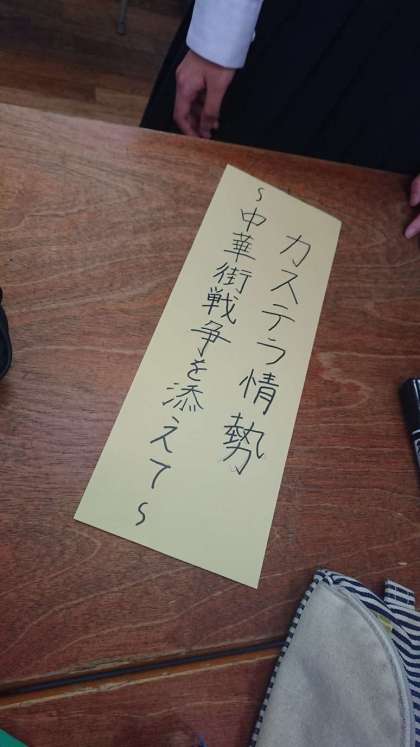 カステラ情勢
~中華街戦争を添えて~